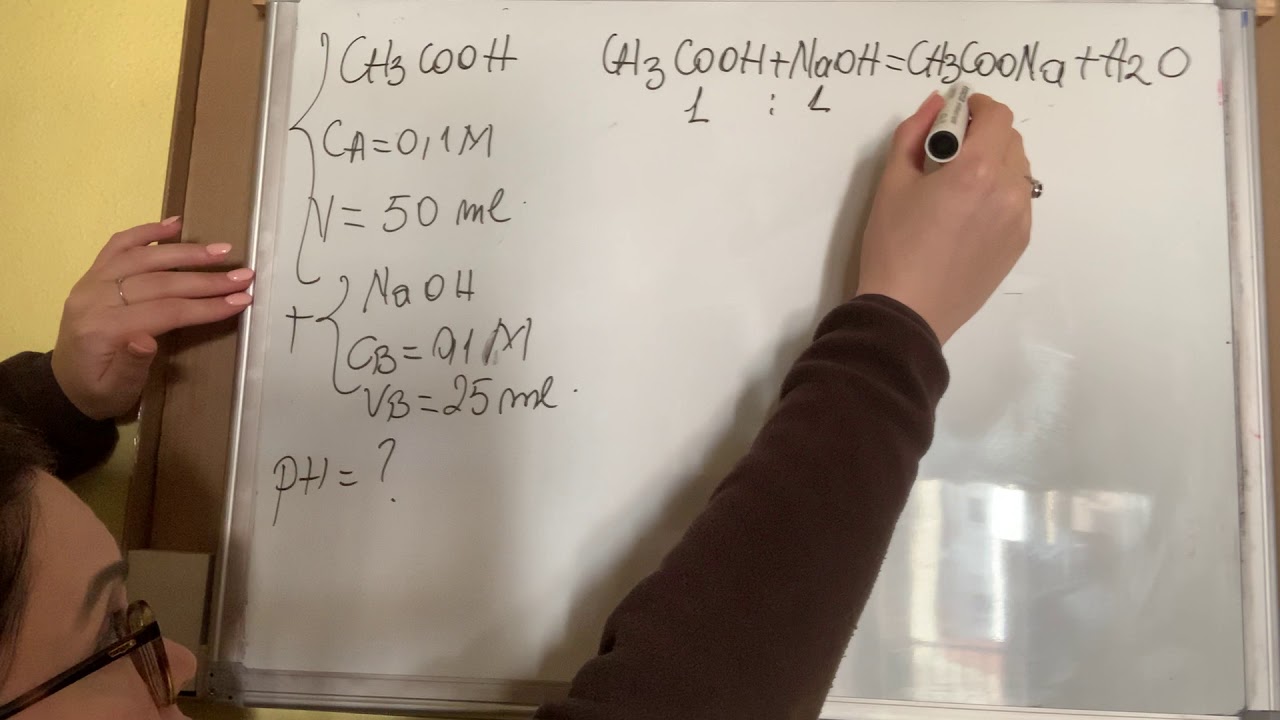 CH3COOH
CA=0,1M
V=50 ml.
+ NaOH
CB=0,1M
VB=25 ml.
pH=?
CH3COOH+NaOH=CH3COONa+H2O
1 : 1